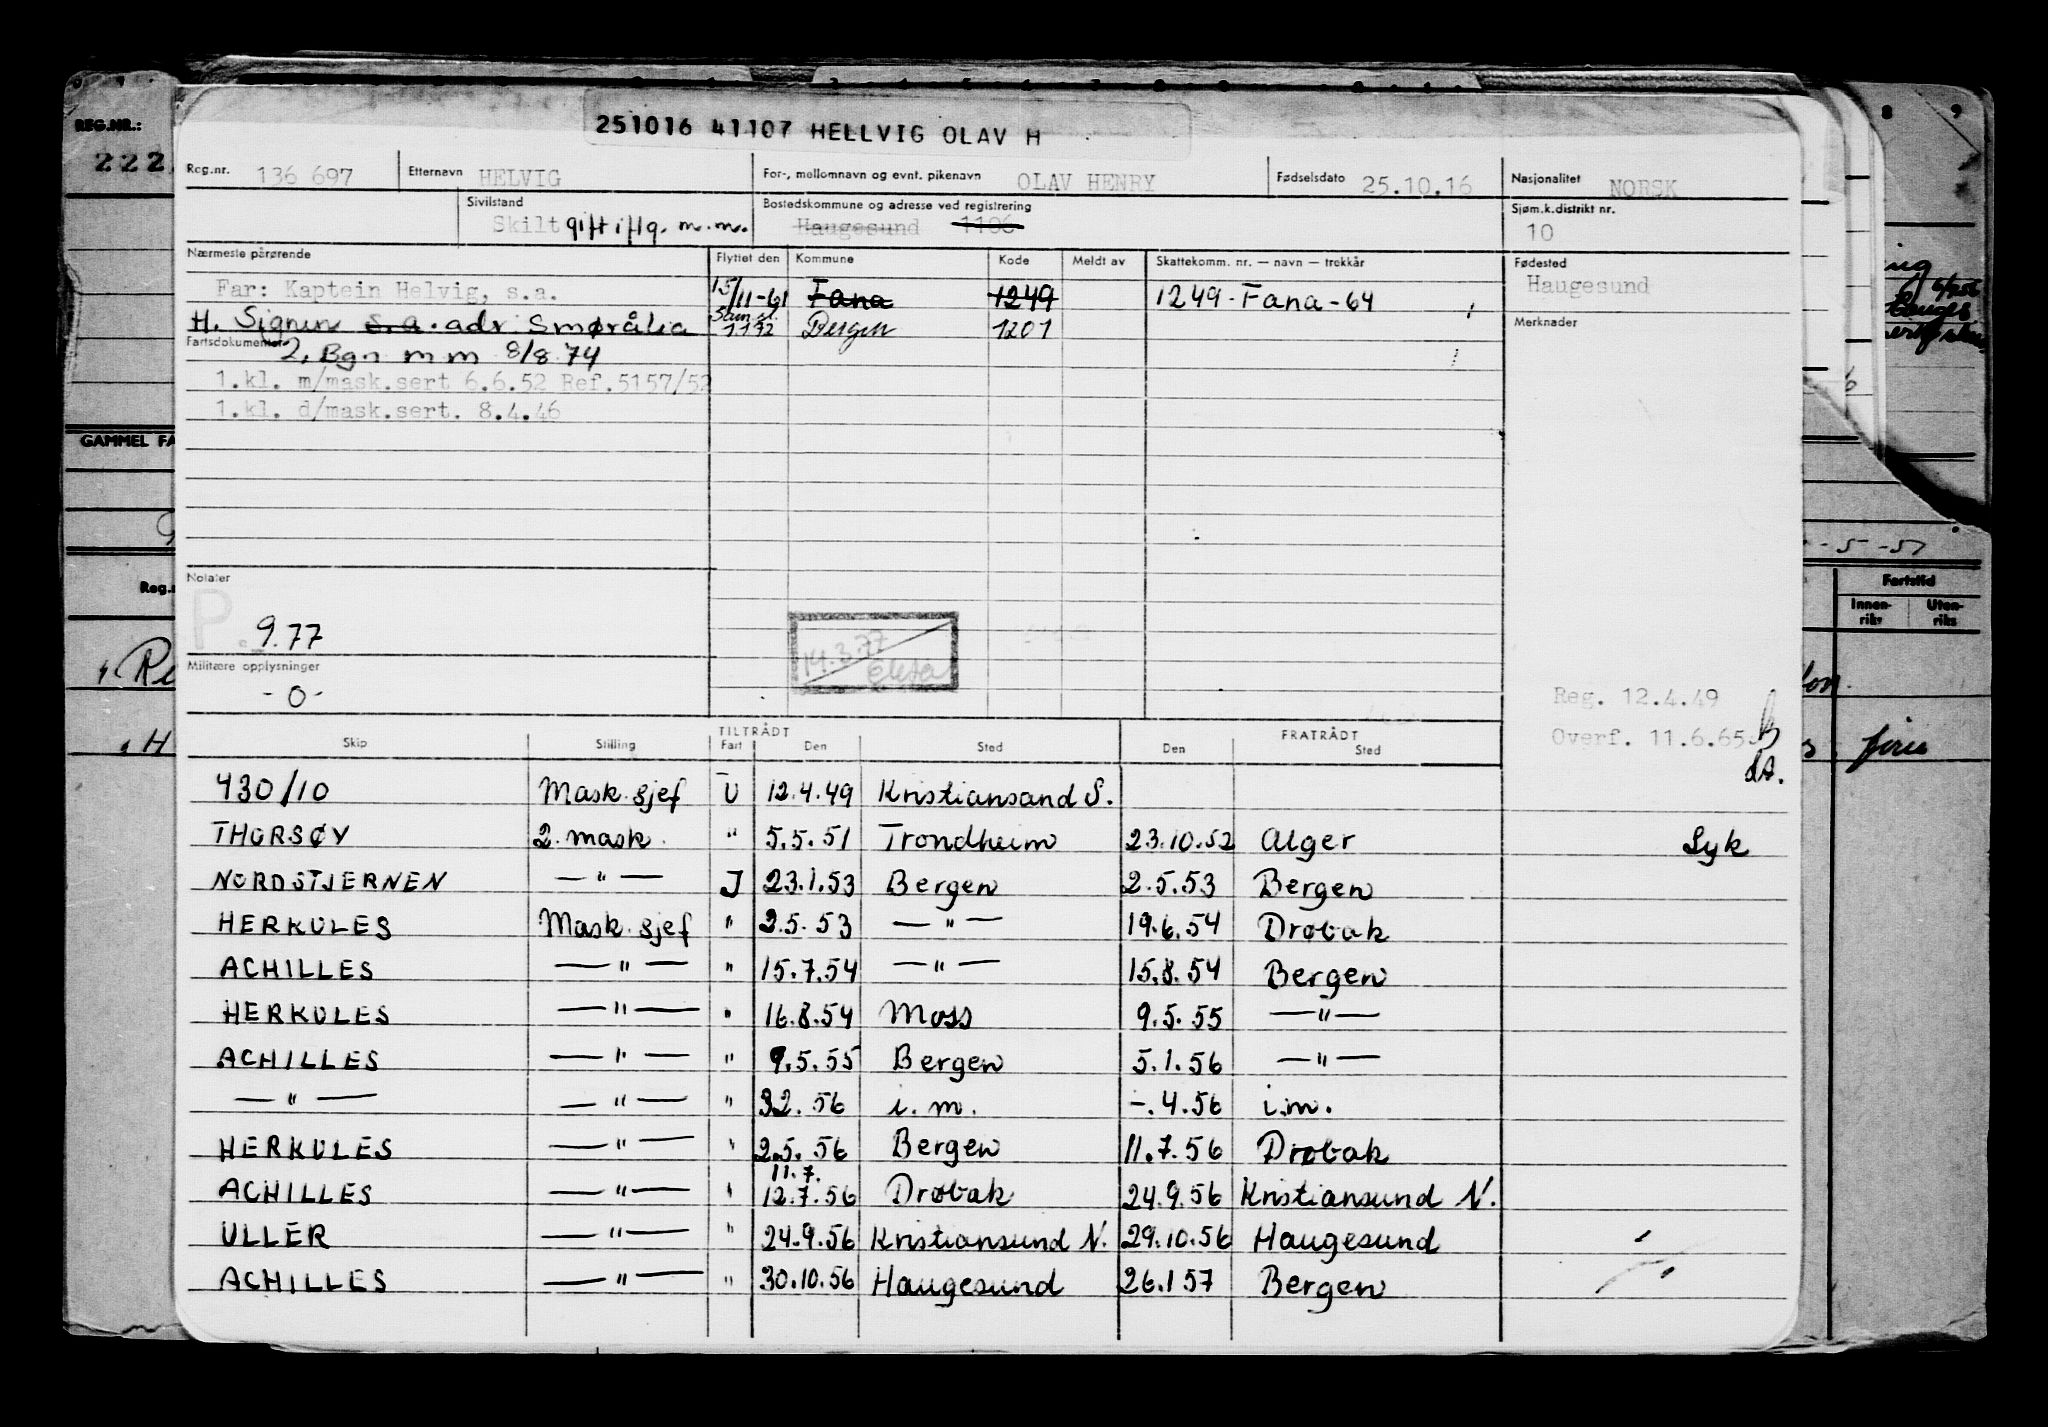 8 9
REG.NR.:
222
251016 41107 HELLVIG OLAV H
Reg.nr. 136 697 Etternavn HELVIG For-, mellomnavn og evnt. pikenavn OLAV HENRY Fødselsdato 25.10.16 Nasjonalitet NORSK
Sivilstand Bostedskommune og adresse ved registrering Sjøm.k.distrikt nr.
Skilt gift iflg. m.m. Haugesund 1106 10
Nærmeste pårørende Flyttet den Kommune Kode Meldt av Skattekomm. nr. — navn — trekkår Fødested
Far: Kaptein Helvig, s.a. 15/11-61 Fana 1249 1249 - Fana - 64 Haugesund
H. Signen s.a. adr. Smørålia 1172 Bergen 1201 Merknader
Fartsdokumenter 2, Bgn m m 8/8 74
1.kl. m/mask.sert 6.6.52 Ref.5157/52
1.kl. d/mask.sert. 8.4.46
GAMMEL FA
-5-57
Notater
P. 9.77
14.3.77
Militære opplysninger
-0-
Fartstid
Innen-riks Uten-riks
Reg. 12.4.49
Overf. 11.6.65
TILTRÅDT FRATRÅDT
Skip Stilling Fart Den Sted Den Sted
430/10 Mask.sjef U 12.4.49 Kristiansand S.
THORSØY 2. mask. " 5.5.51 Trondheim 23.10.52 Alger Syk
NORDSTJERNEN — " — I 23.1.53 Bergen 2.5.53 Bergen
HERKULES Mask.sjef " 2.5.53 — " — 19.6.54 Drøbak
ACHILLES — " — " 15.7.54 — " — 15.8.54 Bergen
HERKULES — " — " 16.8.54 Moss 9.5.55 — " —
ACHILLES — " — " 9.5.55 Bergen 5.1.56 — " —
— " — — " — " 32.56 i.m. -.4.56 i.m.
HERKULES — " — " 2.5.56 Bergen 11.7.56 Drøbak
11.7.
ACHILLES — " — " 12.7.56 Drøbak 24.9.56 Kristiansund N.
ULLER — " — " 24.9.56 Kristiansund N. 29.10.56 Haugesund
ACHILLES — " — " 30.10.56 Haugesund 26.1 57 Bergen